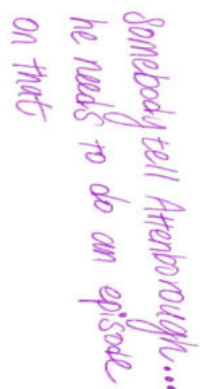 somebody tell Attenborough...
he needs to do an episode
on that